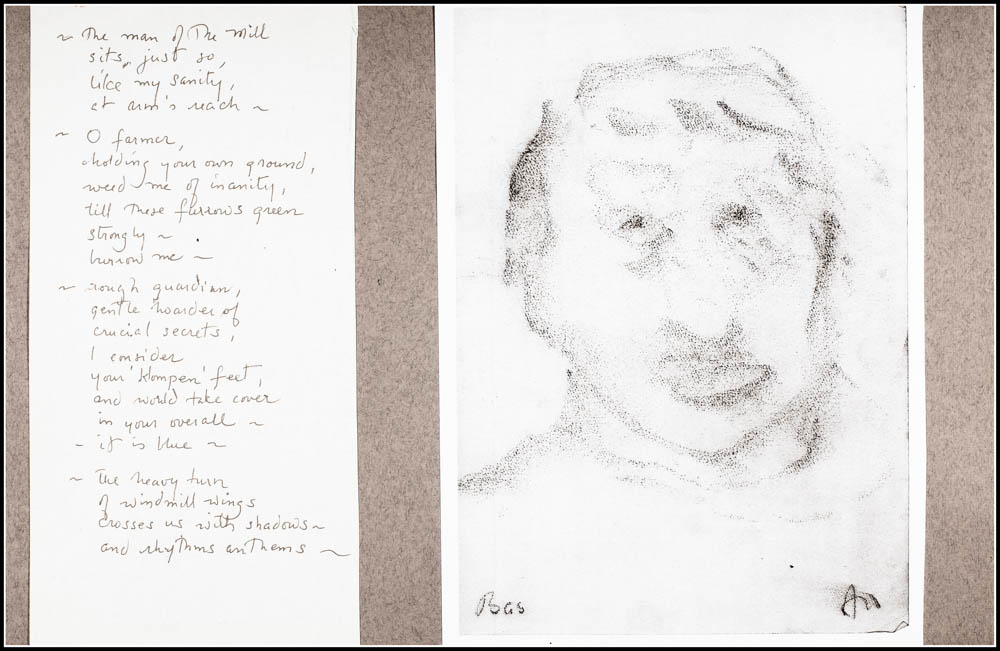 ~ The man of The Mill
sits, just so,
like my sanity,
at arm's reach ~
~ O farmer,
holding your own ground,
weed me of insanity,
till these furrows green
strongly ~
burrow me ~
~ rough guardian,
gentle hoarder of
crucial secrets,
I consider
your 'klompen' feet,
and would take cover
in your overall ~
- it is blue ~
~ The heavy turn
of windmill wings
crosses us with shadows ~
and rhythms anthems ~
Bas